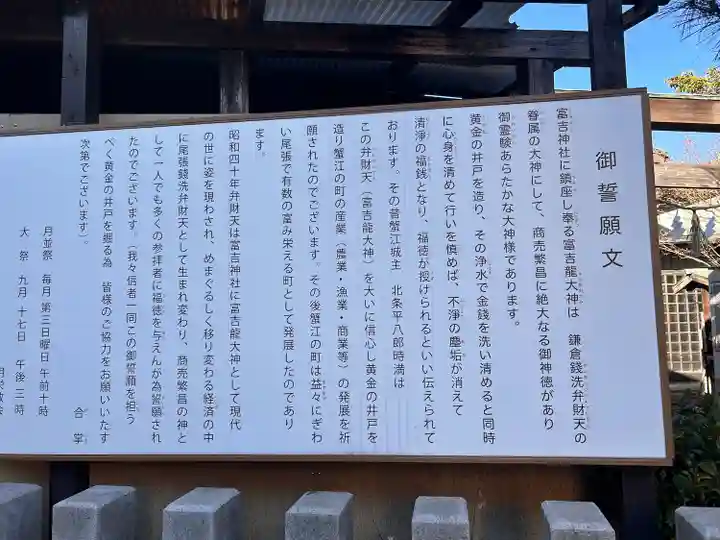 御誓願文
富吉神社に鎮座し奉る富吉龍大神は　鎌倉銭洗弁財天の
眷属の大神にして、商売繁昌に絶大なる御神徳があり
御霊験あらたかな大神様であります。
黄金の井戸を造り、その浄水で金銭を洗い清めると同時
に心身を清めて行いを慎めば、不浄の塵垢が消えて
清浄の福銭となり、福徳が授けられるといい伝えられて
おります。その昔蟹江城主　北条平八郎時満は
この弁財天（富吉龍大神）を大いに信心し黄金の井戸を
造り蟹江の町の産業（農業・漁業・商業等）の発展を祈
願されたのでございます。その後蟹江の町は益々にぎわ
い尾張で有数の富み栄える町として発展したのであり
ます。
昭和四十年弁財天は富吉神社に富吉龍大神として現代
の世に姿を現わされ、めまぐるしく移り変わる経済の中
に尾張銭洗弁財天として生まれ変わり、商売繁昌の神と
して一人でも多くの参拝者に福徳を与えんが為誓願され
たのでございます。（我々信者一同この御誓願を担う
べく黄金の井戸を掘る為　皆様のご協力をお願いいたす
次第でございます）。
合掌
月並祭　毎月　第三日曜日　午前十時
大祭　九月　十七日　午後二時